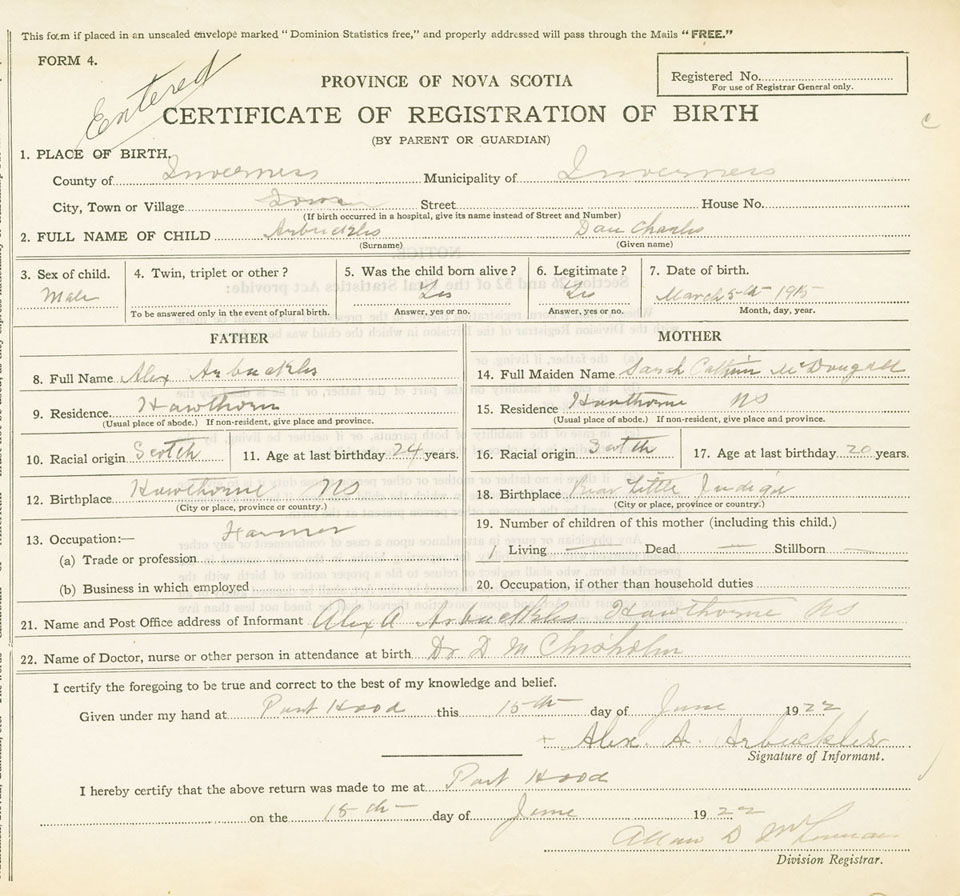 This form if placed in an unsealed envelope marked "Dominion Statistics free," and properly addressed will pass through the Mails "FREE."
FORM 4.
Entered
PROVINCE OF NOVA SCOTIA
Registered No.
For use of Registrar General only.
CERTIFICATE OF REGISTRATION OF BIRTH
(BY PARENT OR GUARDIAN)
1. PLACE OF BIRTH.
County of Inverness Municipality of Inverness
City, Town or Village Street House No.
(If birth occurred in a hospital, give its name instead of Street and Number)
2. FULL NAME OF CHILD Arbuckles Dan Charles
(Surname) (Given name)
3. Sex of child. 4. Twin, triplet or other? 5. Was the child born alive? 6. Legitimate? 7. Date of birth.
Male Yes Yes March 5th 1915
To be answered only in the event of plural birth. Answer, yes or no. Answer, yes or no. Month, day, year.
FATHER MOTHER
8. Full Name Alex Arbuckles 14. Full Maiden Name Sarah McDougall
9. Residence Hawthorn 15. Residence Hawthorne NS
(Usual place of abode.) If non-resident, give place and province. (Usual place of abode.) If non-resident, give place and province.
10. Racial origin Scotch 11. Age at last birthday 24 years. 16. Racial origin Scotch 17. Age at last birthday 20 years.
12. Birthplace Hawthorne NS 18. Birthplace Little Judique
(City or place, province or country.) (City or place, province or country.)
13. Occupation:— Farmer 19. Number of children of this mother (including this child.)
(a) Trade or profession 1 Living Dead Stillborn
(b) Business in which employed 20. Occupation, if other than household duties
21. Name and Post Office address of Informant Alex A Arbuckles Hawthorne NS
22. Name of Doctor, nurse or other person in attendance at birth Dr D M Chisholm
I certify the foregoing to be true and correct to the best of my knowledge and belief.
Given under my hand at Port Hood this 15th day of June 1922
+ Alex. A. Arbuckles
Signature of Informant.
I hereby certify that the above return was made to me at Port Hood
on the 15th day of June 1922
Allan D
Division Registrar.